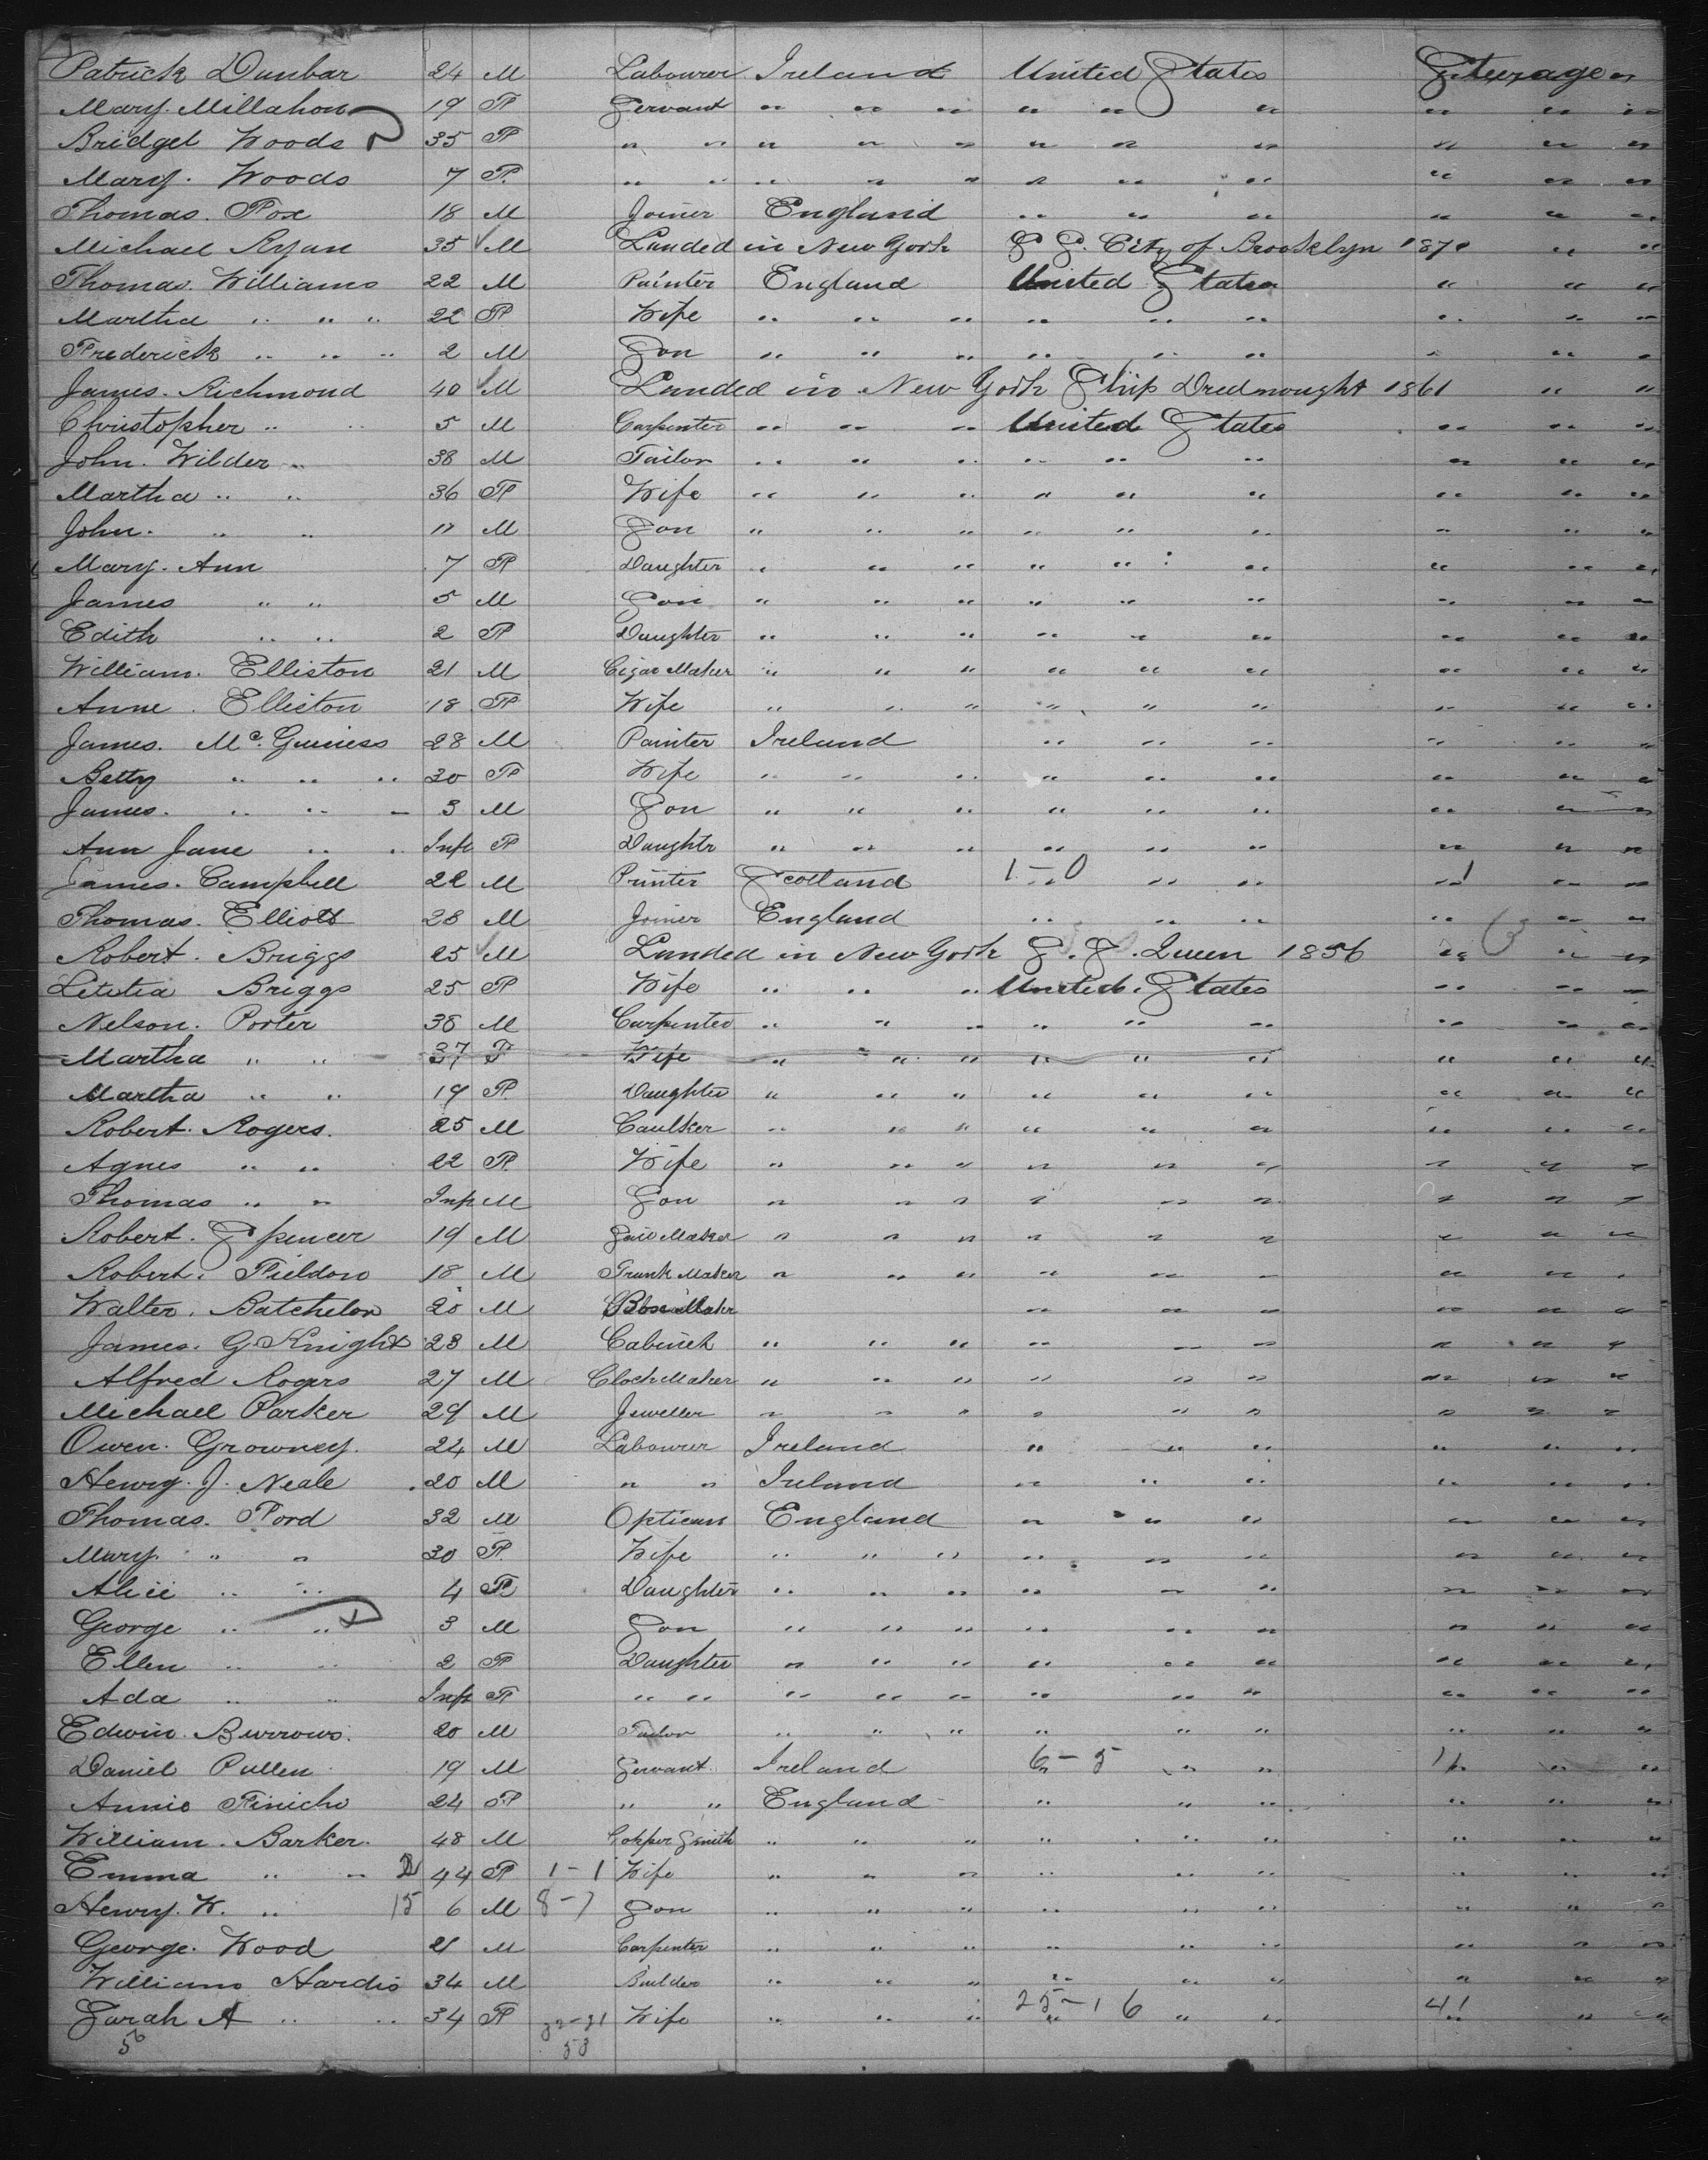 Patrick Dunbar 24 M Labourer Ireland United States Steerage "
Mary. Millahon 19 F Servant " " " " " " " " "
Bridget Woods 35 F " " " " " " " " " " "
Mary. Woods 7 F. " " " " " " " " " " "
Thomas. Fox 18 M Joiner England " " " " " "
Michael Ryan 35 M Landed in New York S S. City of Brooklyn 1870 " "
Thomas. Williams 22 M Painter England United States " " "
Martha " " " 22 F Wife " " " " " " " " "
Frederick " " " 2 M Son " " " " " " " " "
James. Richmond 40 M Landed in New York Ship Drednought 1861 " "
Christopher " " 5 M Carpenter " " " United States " " "
John. Wilder " 38 M Tailor " " " " " " " " "
Martha " " 36 F Wife " " " " " " " " "
John. " " 11 M Son " " " " " " " " "
Mary. Ann 7 F Daughter " " " " " " " " "
James " " 5 M Son " " " " " " " " "
Edith " " 2 F Daughter " " " " " " " " "
William. Elliston 21 M Cigar Maker " " " " " " " " "
Anne. Elliston 18 F Wife " " " " " " " " "
James. Mc. Guiness 28 M Painter Ireland " " " " " "
Betty " " " 30 F Wife " " " " " " " " "
James. " " " 3 M Son " " " " " " " " "
Ann Jane " " Inft F Daughtr " " " " " " " " "
James. Campbell 22 M Printer Scotland 1-0 " " " 1 " " "
Thomas. Elliott 28 M Joiner England " " " " " "
Robert. Briggs 25 M Landed in New York S. S. Queen 1856 " " "
Letitia Briggs 25 F Wife " " " United. States " " "
Nelson. Porter 38 M Carpenter " " " " " " " " "
Martha " " 37 F Wife " " " " " " " " "
Martha " " 19 F. Daughter " " " " " " " " "
Robert. Rogers. 25 M Caulker " " " " " " " " "
Agnes " " 22 F. Wife " " " " " " " " "
Thomas " " Inft M Son " " " " " " " " "
Robert. Spencer 19 M Maker " " " " " " " " "
Robert. Fieldon 18 M Trunk Maker " " " " " " " " "
Walter. Batchelor 20 M Box Maker " " " " " "
James. G. Knight 23 M Cabinet " " " " " " " " "
Alfred Rogers 27 M Clock Maker " " " " " " " " "
Michael Parker 29 M Jeweller " " " " " " " " "
Owen. Growney. 24 M Labourer Ireland " " " " " "
Henry. J. Neale 20 M " " Ireland " " " " " "
Thomas. Ford 32 M Optican England " " " " " "
Mary. " " 30 F. Wife " " " " " " " " "
Alice " " 4 F. Daughter " " " " " " " " "
George " " 3 M Son " " " " " " " " "
Ellen " " 2 F Daughter " " " " " " " " "
Ada " " Inft F " " " " " " " " " " "
Edwin. Burrows. 20 M Tailor " " " " " " " " "
Daniel Pullen 19 M Servant. Ireland 6-5 " " " 11 " " "
Annie 24 F " " England " " " " " "
William. Barker. 48 M Copper Smith " " " " " " " " "
Emma " " 44 F 1-1 Wife " " " " " " " " "
Henry. W. " 15 6 M 8-7 Son " " " " " " " " "
George. Wood 21 M Carpenter " " " " " " " " "
William Hardis 34 M Builder " " " " " " " " "
Sarah A " " 34 F Wife " " " 25-16 " " " 41 " " "
56 53